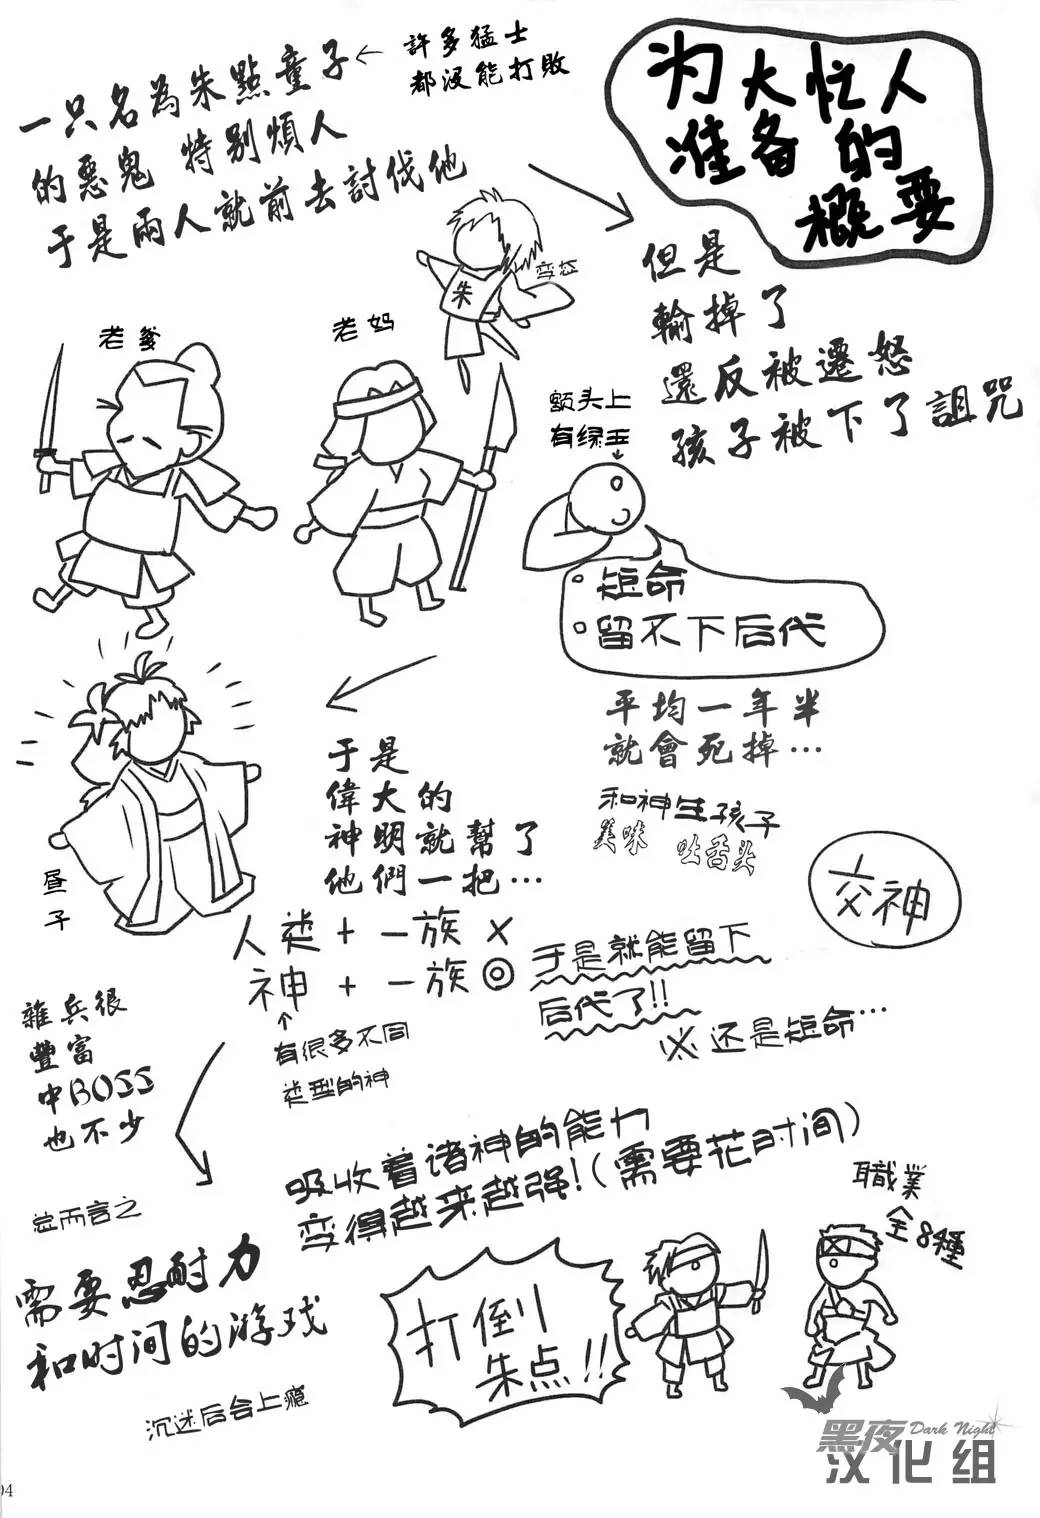 为大忙人
准备的
概要
一只名為朱點童子
的惡鬼 特別煩人
于是兩人就前去討伐他
← 許多猛士
都沒能打敗
朱
老爹
老妈
但是
輸掉了
還反被遷怒
孩子被下了詛咒
额头上
有绿玉
。短命
。留不下后代
平均一年半
就會死掉…
于是
偉大的
神明就幫了
他們一把…
昼子
和神生孩子
美味 吐舌头
交神
人类+一族×
神+一族◎
↑
有很多不同
类型的神
于是就能留下
后代了!!
※还是短命…
雜兵很
豐富
中BOSS
也不少
吸收着诸神的能力
变得越来越强!(需要花时间)
職業
全8種
总而言之
需要忍耐力
和时间的游戏
沉迷后会上瘾
打倒
朱点!!
黑夜 Dark Night
汉化组
04